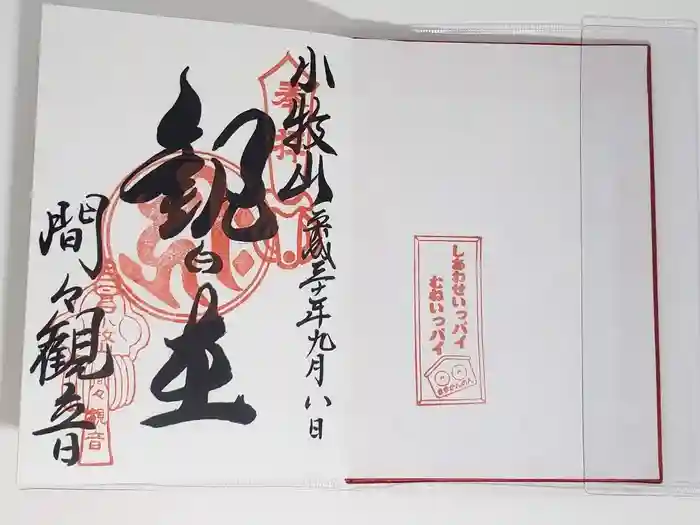 奉拝
小牧山
平成三十年九月八日
観世音
間々観音
間々観音
しあわせいっパイ
むねいっパイ